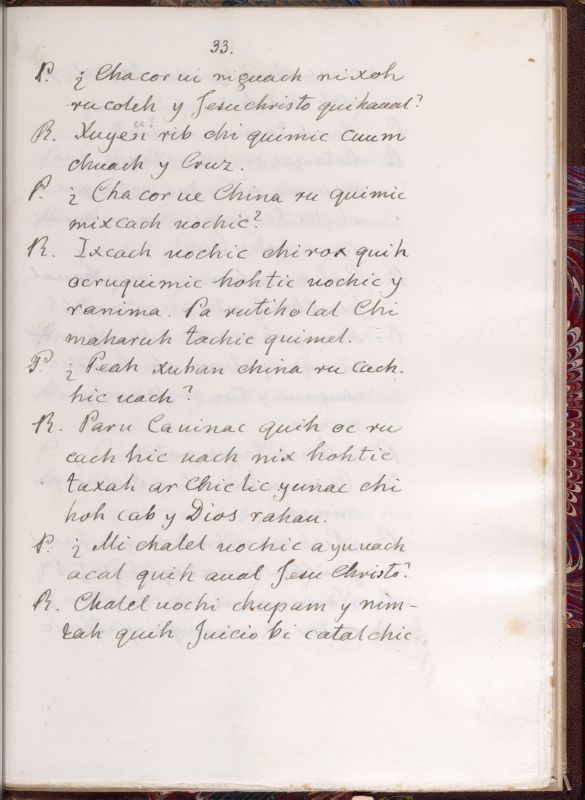 33.
P. ¿ Chacor ui niguach nixoh
rucoleh y Jesuchristo quihaual?
R. Xuyeü rib chi quimic cuum
chuach y Cruz.
P. ¿ Chacor ue China ru quimic
mixcach uochic?
R. Ixcach uochic chirox quih
ocruquimic hohtic uochic y
ranima. Pa rutiholal Chi
maharuh tachic quimel.
P. ¿ Peah xuban china ru cach-
hic uach?
R. Paru Cauinac quih oc ru
cach hic uach nix hohtic
taxah ar Chic lic yunac chi
hoh cab y Dios rahau.
P. ¿ Mi chalel uochic a yuuach
acal quih aual Jesu Christo?
R. Chalel uochi chupam y nim-
lah quih Juicio bi catalchic